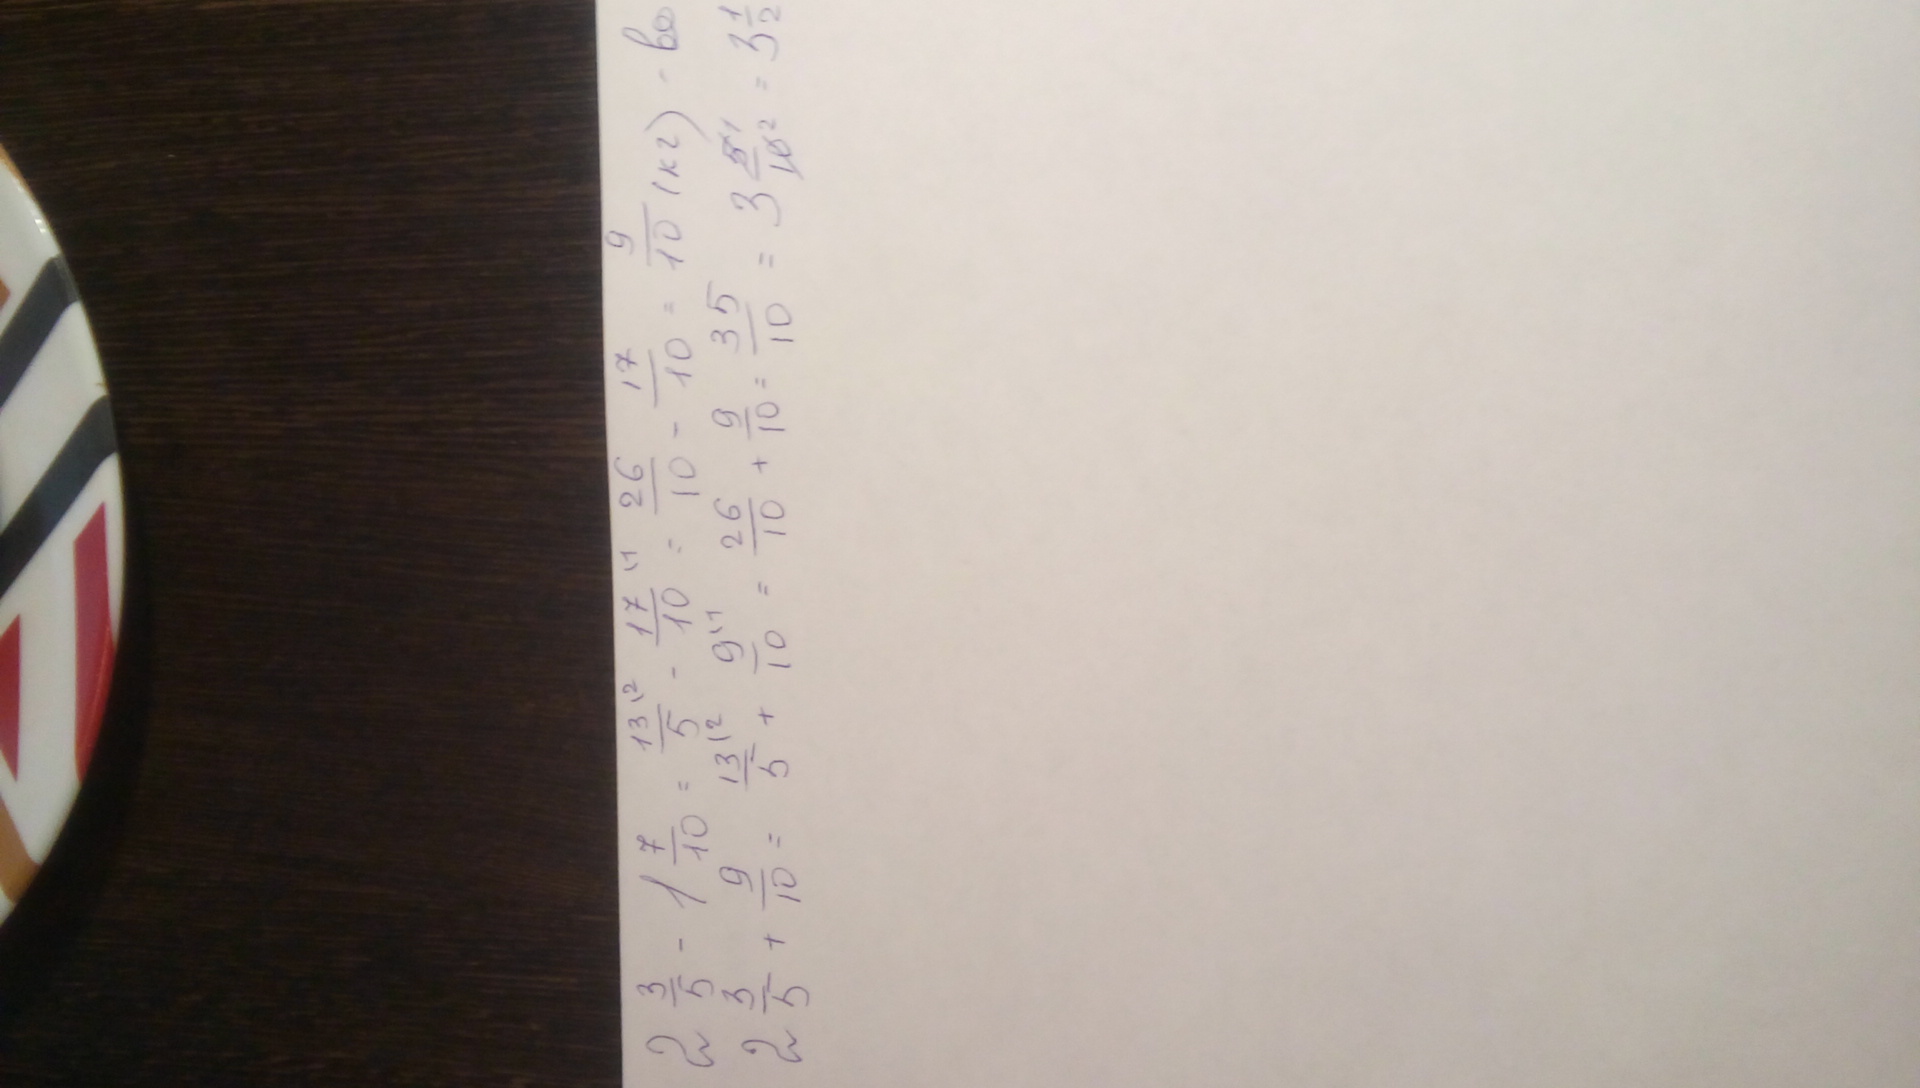 2 3/5 - 1 7/10 = 13\2/5 - 17\1/10 = 26/10 - 17/10 = 9/10 (кг) - во
2 3/5 + 9/10 = 13\2/5 + 9\1/10 = 26/10 + 9/10 = 35/10 = 3 5 1/10 2 = 3 1/2